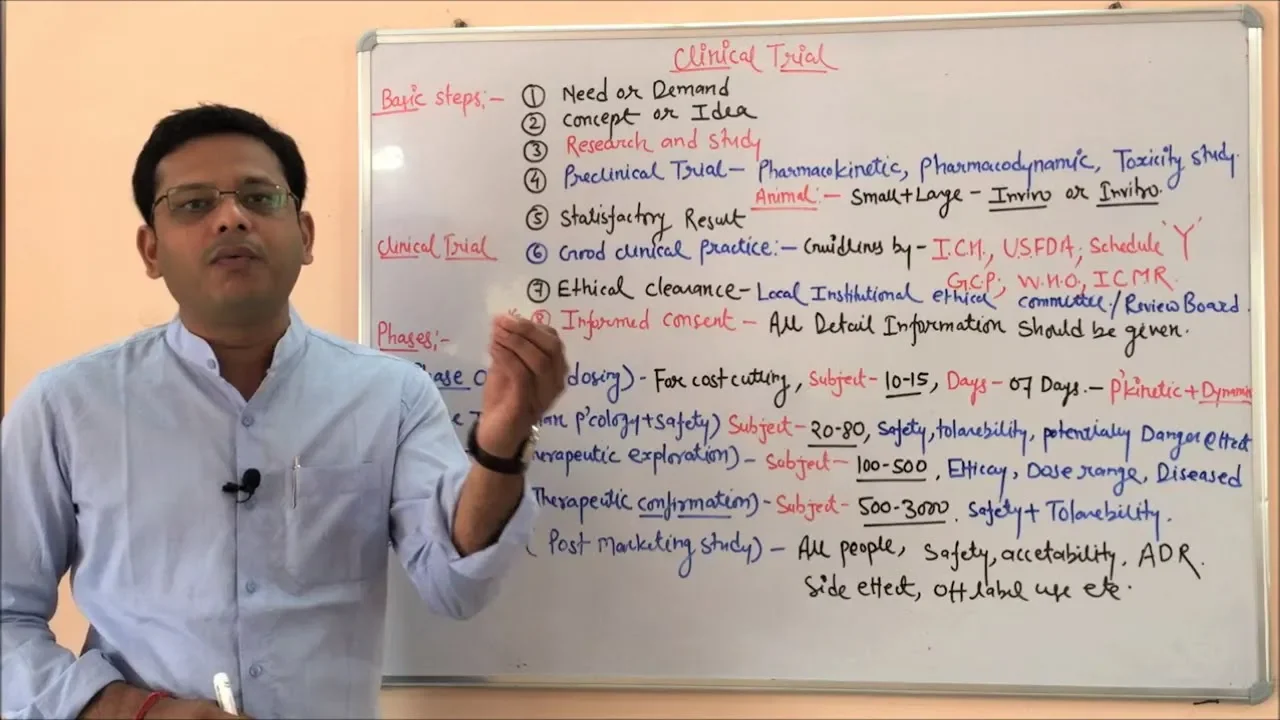 Clinical Trial
Basic steps:- ① Need or Demand
② Concept or Idea
③ Research and study
④ Preclinical Trial - Pharmacokinetic, Pharmacodynamic, Toxicity study.
Animal:- Small+Large - Invivo or Invitro.
⑤ Statisfactory Result
Clinical Trial ⑥ Good clinical practice:- Guidlines by - I.C.H., U.S.FDA, Schedule 'Y'
G.C.P., W.H.O, ICMR.
⑦ Ethical clearance - Local Institutional ethical committee/Review Board.
⑧ Informed consent - All Detail Information should be given.
Phases:-
Phase dosing) - For cost cutting, Subject - 10-15, Days - 07 Days. - P'kinetic + Dynamic
P'cology+safety) Subject - 20-80, Safety, tolarebility, potentially Danger effect
herapeutic exploration) - Subject - 100-500, Efficay, Dose range, Diseased
Therapeutic confirmation) - Subject - 500-3000. Safety + Tolarebility.
( Post Marketing study) - All people, Safety, accetability, ADR.
Side effect, Off label use etc.